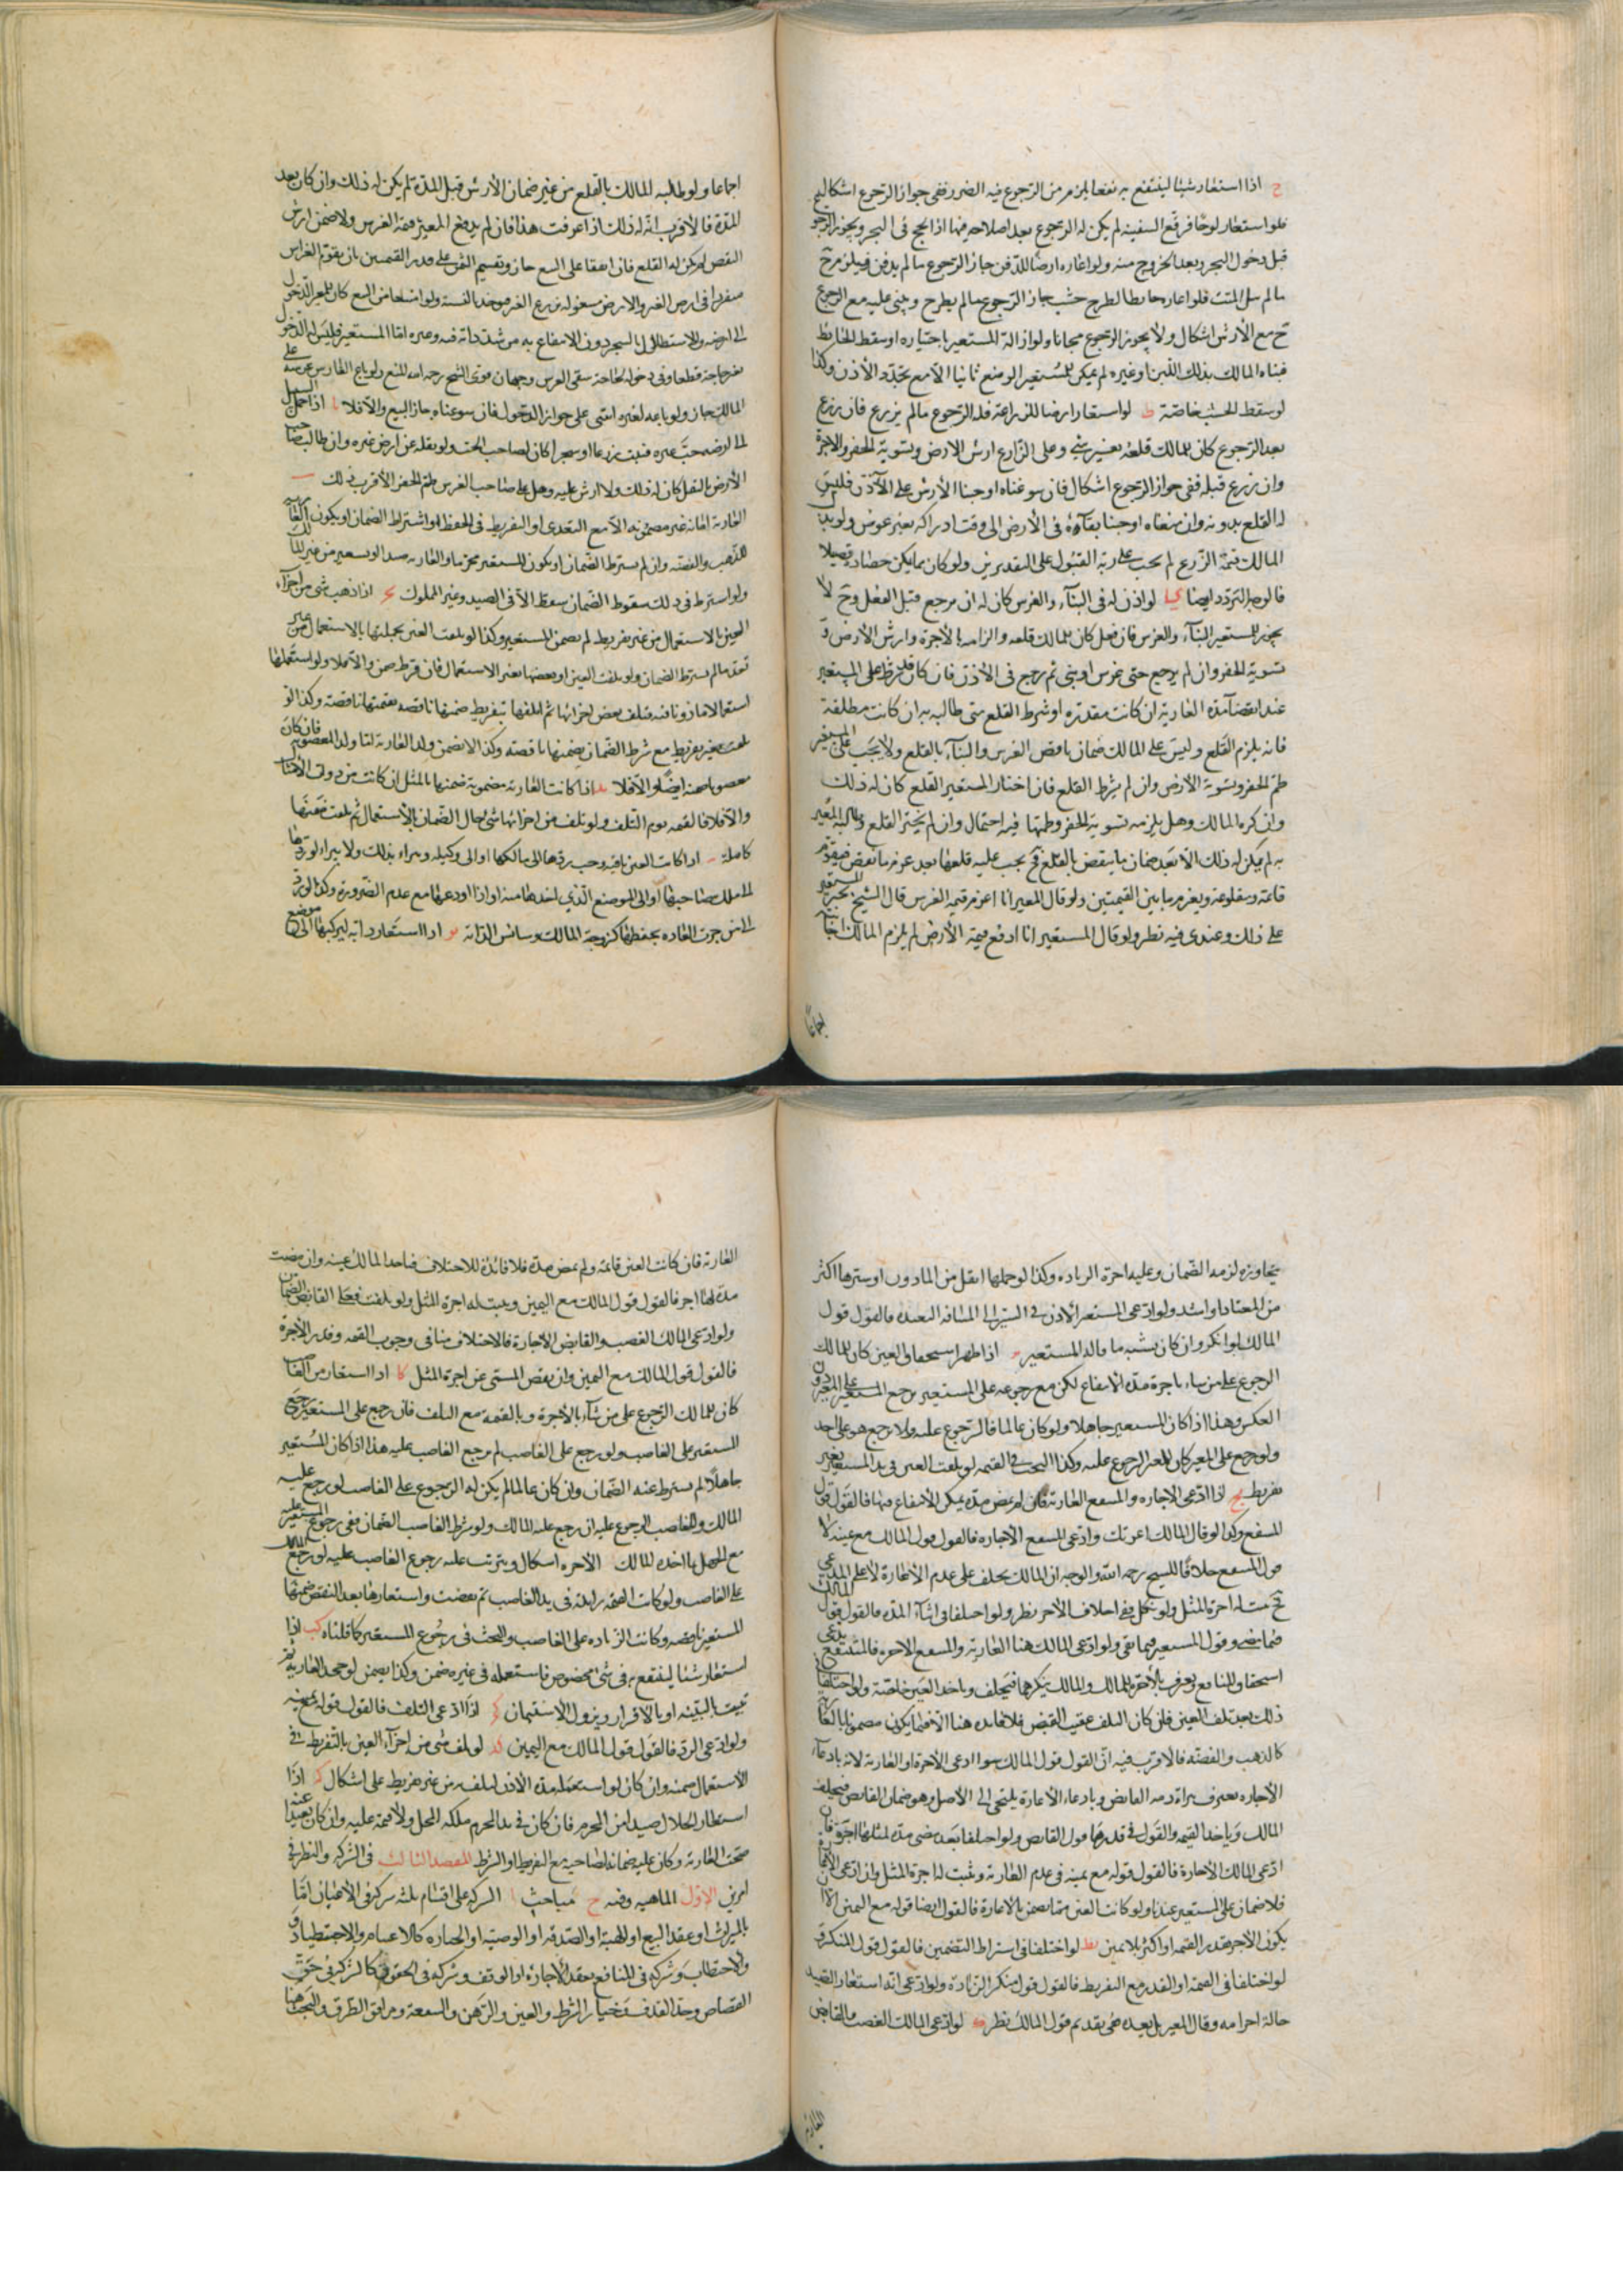 ح اذا استعار شيئا لينتفع به نفعا يلزم من الرجوع فيه الضرر ففي جواز الرجوع اشكال
فلو استعار لوحا فرقع السفينة لم يكن له الرجوع بعد اصلاحه فيها اذا لجج في البحر ويجوز الرجوع
قبل دخول البحر وبعد الخروج منه ولو اعاره ارضا للدفن جاز الرجوع ما لم يدفن فيلزم ح
ما لم يبل الميت فلو اعاره حايطا لطرح خشب جاز الرجوع ما لم يطرح ويبنى عليه مع الرجوع
ح مع الارش اشكال ولا يجوز الرجوع مجانا ولو ازاله المستعير باختياره او سقط الحائط
فبناه المالك بذلك اللبن او غيره لم يمكن للمستعير الوضع ثانيا الا مع تجدد الاذن وكذا
لو سقط الخشب خاصة ط لو استعار ارضا للزراعة فله الرجوع ما لم يزرع فان زرع
بعد الرجوع كان للمالك قلعه بغير شي وعلى الزارع ارش الارض وتسوية الحفر والاجرة
وان زرع قبله ففي جواز الرجوع اشكال فان سوغناه اوجبنا الارش على الآذن فليس
له القلع بدونه وان منعناه اوجبنا بقآؤه في الارض الى وقت ادراكه بغير عوض ولو بذل
المالك قيمة الزرع لم يجب على ربه القبول على التقديرين ولو كان مما يمكن حصاده قصيلا
فالوجه التردد ايضا يا لو اذن له في البنآء والغرس كان له ان يرجع قبل الفعل وح لا
يجوز للمستعير البنآء والغرس فان فعل كان للمالك قلعه والزامه بالاجرة وارش الارض و
تسوية الحفر وان لم يرجع حتى غرس او بنى ثم رجع في الاذن فان كان قد شرط على المستعير
عند انقضآء مدة العارية ان كانت مقدرة او شرط القلع متى طالبه به ان كانت مطلقة
فانه يلزم القلع وليس على المالك ضمان ما نقص الغرس والبنآء بالقلع ولا يجب على المستعير
طم الحفر وتسوية الارض وان لم يشرط القلع فان اختار المستعير القلع كان له ذلك
وان كره المالك وهل يلزمه تسوية الحفر وطمها فيه احتمال وان لم يختر القلع وطالبه المعير
به لم يمكن له ذلك الا بعد ضمان ما ينقص بالقلع فح يجب عليه قلعها بعد غرم ما نقص فيقوم
قائمة ومقلوعة ويغرم ما بين القيمتين ولو قال المعير انا اغرم قيمة الغرس قال الشيخ يجبر المستعير
على ذلك وعندي فيه نظر ولو قال المستعير انا ادفع قيمة الارض لم يلزم المالك اجابته
اجماعا
اجماعا ولو طالبه المالك بالقلع من غير ضمان الارش قبل المدة لم يكن له ذلك وان كان بعد
المدة فالاقرب انه له ذلك اذا عرفت هذا فان لم يدفع المعير قيمة الغرس ولا ضمن ارش
النقص لم يكن له القلع فان اتفقا على البيع جاز ويقسم الثمن على قدر القيمتين بان يقوم الغراس
الى ارضه والاستظلال بالشجر دون الانتفاع به من شد دابة فيه وغيره اما المستعير فليس له الدخول
لغير حاجة قطعا وفي دخوله لحاجة سقي الغرس وجهان قوى الشيخ رحمه الله المنع ولو باع الغارس غرسه على
المالك جاز ولو باعه لغيره ابتنى على جواز الدخول فان سوغناه جاز البيع والا فلا اذا حمل السيل
الى ارضه حب غيره فنبت زرعا او شجرا كان لصاحب الحب ولو نقله عن ارض غيره وان طالب صاحب
الارض بالنقل كان له ذلك ولا ارش عليه وهل على صاحب الغرس طم الحفر الاقرب ذلك
العارية امانة غير مضمونة الا مع التعدي او التفريط في الحفظ او اشتراط الضمان او يكون
للذهب والفضة وان لم يشترط الضمان او يكون المستعير محرما والعارية صيدا او يستعير من غير المالك
ولو اشترط في ذلك سقوط الضمان سقط الا في الصيد وغير المملوك اذا ذهب شي من اجزآء
العين بالاستعمال من غير تفريط لم يضمن المستعير وكذا لو تلفت العين بجملتها بالاستعمال من غير
تعد ما لم يشترط الضمان ولو تلفت العين او بعضها بغير الاستعمال فان فرط ضمن والا فلا ولو استعملها
تلفت بغير تفريط مع شرط الضمان يضمنها ناقصة وكذا لا يضمن ولد العارية اما ولد المغصوبة فان كان
مغصوبا ضمنه ايضا والا فلا اذا كانت العارية مضمونة ضمنها بالمثل ان كانت من ذوات الامثال
والا فلا فالقيمة يوم التلف ولو تلف من اجزائها شي حال الضمان بالاستعمال ثم تلفت ضمنها
كاملة اذا كانت العين باقية وجب ردها الى مالكها او الى وكيله ويبرأ بذلك ولا يبرأ لو ردها
الى ملك صاحبها او الى الموضع الذي اخذها منه او اذا اودعها مع عدم الضرورة وكذا لو رد
الى من جرت العادة بحفظها كزوجة المالك وسائس الدابة يو اذا استعار دابة ليركبها الى موضع
يجاوزه لزمه الضمان وعليه اجرة الزيادة وكذا لو حملها اثقل من الماذون او سيرها اكثر
من المعتاد او اشد ولو ادعى المستعير الاذن في السير الى المسافة البعيدة فالقول قول
المالك لو انكر وان كان يشبه ما قاله المستعير اذا ظهر استحقاق العين كان للمالك
الرجوع على من شاء باجرة مدة الانتفاع لكن مع رجوعه على المستعير يرجع المستعير على المعير دون
العكس وهذا اذا كان المستعير جاهلا ولو كان عالما فالرجوع عليه ولا يرجع هو على احد
ولو رجع على المعير كان للمعير الرجوع عليه وكذا البحث في القيمة لو تلفت العين في يد المستعير بغير
تفريط يح اذا ادعى الاجارة والمنتفع العارية فان لم يمض مدة يمكن الانتفاع فيها فالقول قول
المنتفع وكذا لو قال المالك اعرتك وادعى المنتفع الاجارة فالقول قول المالك مع يمينه لا
قول المنتفع خلافا للشيخ رحمه الله والوجه ان المالك يحلف على عدم الاعارة لا على المدعى
فيما مضى وقول المستعير فيما بقي ولو ادعى المالك هنا العارية والمنتفع الاجرة فالمنتفع يدعي
استحقاق المنافع ويعترف بالاجرة للمالك والمالك ينكرهما فيحلف وياخذ العين خاصة ولو اختلفا
ذلك بعد تلف العين فان كان التلف عقيب القبض فلا فائدة هنا الا فيما يكون مضمونا بالعارية
كالذهب والفضة فالاقرب فيه ان القول قول المالك سوا ادعى الاجرة او العارية لانه بادعآء
الاجارة يعترف ببراءة ذمة القابض وبادعاء الاعارة يلتجي الى الاصل وهو ضمان القابض فيحلف
المالك وياخذ القيمة والقول في قدرها قول القابض ولو اختلفا بعد مضي مدة لمثلها اجرة فان
ادعى المالك الاجارة فالقول قوله مع يمينه في عدم العارية وثبت له اجرة المثل وان ادعى الاعارة
فلا ضمان على المستعير عندنا ولو كانت العين مما يضمن بالاعارة فالقول ايضا قوله مع اليمين الا ان
يكون الاجر بقدر القيمة او اكثر بلا يمين يط لو اختلفا في اشتراط التضمين فالقول قول المنكر و
لو اختلفا في القيمة او القدر مع التفريط فالقول قول منكر الزيادة ولو ادعى انه استعار الصيد
حالة احرامه وقال المعير بل بعده ففي تقديم قول المالك نظر ك لو ادعى المالك الغصب والقابض
العارية
العارية فان كانت العين قائمة ولم يمض مدة فلا فائدة للاختلاف فياخذ المالك عينه وان مضت
مدة لها اجر فالقول قول المالك مع اليمين ويثبت له اجرة المثل ولو تلفت فعلى القابض الضمان
ولو ادعى المالك الغصب والقابض الاجارة فالاختلاف هنا في وجوب القيمة وقدر الاجرة
فالقول قول المالك مع اليمين وان نقص المسمى عن اجرة المثل كا اذا استعار من الغاصب
كان للمالك الرجوع على من شآء بالاجرة وبالقيمة مع التلف فان رجع على المستعير رجع
المستعير على الغاصب ولو رجع على الغاصب لم يرجع الغاصب عليه هذا اذا كان المستعير
جاهلا لم يشترط عنه الضمان وان كان عالما لم يكن له الرجوع على الغاصب لو رجع عليه
المالك وللغاصب الرجوع عليه ان رجع عليه المالك ولو شرط الغاصب الضمان ففي رجوع المستعير عليه
مع الجهل بما اخذه المالك الاجرة اشكال ويترتب عليه رجوع الغاصب عليه لو رجع المالك
على الغاصب ولو كانت القيمة زايدة في يد الغاصب ثم نقصت واستعارها بعد النقص ضمنها
المستعير ناقصة وكانت الزيادة على الغاصب والبحث في رجوع المستعير كما قلناه كب اذا
استعار شيئا لينتفع به في شي مخصوص فاستعمله في غيره ضمن وكذا يضمن لو جحد العارية ثم
ثبت بالبينة او بالاقرار ويزول الاستيمان كج اذا ادعى التلف فالقول قوله مع يمينه
ولو ادعى الرد فالقول قول المالك مع اليمين كد لو تلف شي من اجزآء العين بالتفريط في
الاستعمال ضمنه وان كان لو استعمله مدة الاذن لتلف من غير تفريط على اشكال كه اذا
استعار المحل صيدا من المحرم فان كان في يد المحرم ملكه المحل ولا قيمة عليه وان كان بعيدا عنه
صحت العارية وكان عليه ضمانه لصاحبه مع التفريط او الشرط المقصد الثالث في الشركة والنظر في
امرين الاول الماهية وفيه ح مباحث ا الشركة على اقسام ثلثة شركة في الاعيان اما
بالميراث او عقد البيع او الهبة او الصدقة او الوصية او الحيازة كالاغتنام والاحتطياد و
والاحتطاب وشركة في المنافع بعقد الاجارة او الوقف وشركة في الحقوق كالشركة في حق
القصاص وحد القذف وخيار الشرط والعين والرهن والشفعة ومرافق الطرق والبحث هنا